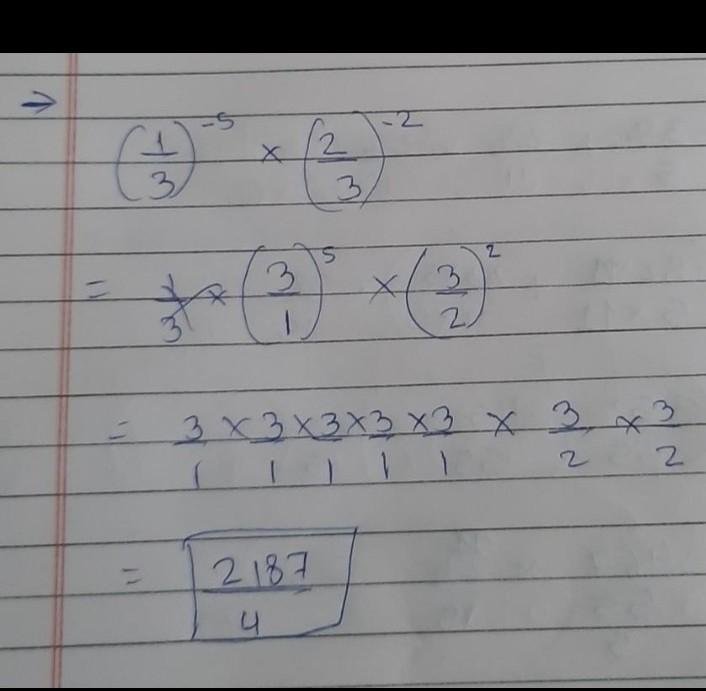 →
(1/3)^-5 × (2/3)^-2
= (3/1)^5 × (3/2)^2
= 3/1 × 3/1 × 3/1 × 3/1 × 3/1 × 3/2 × 3/2
= 2187/4